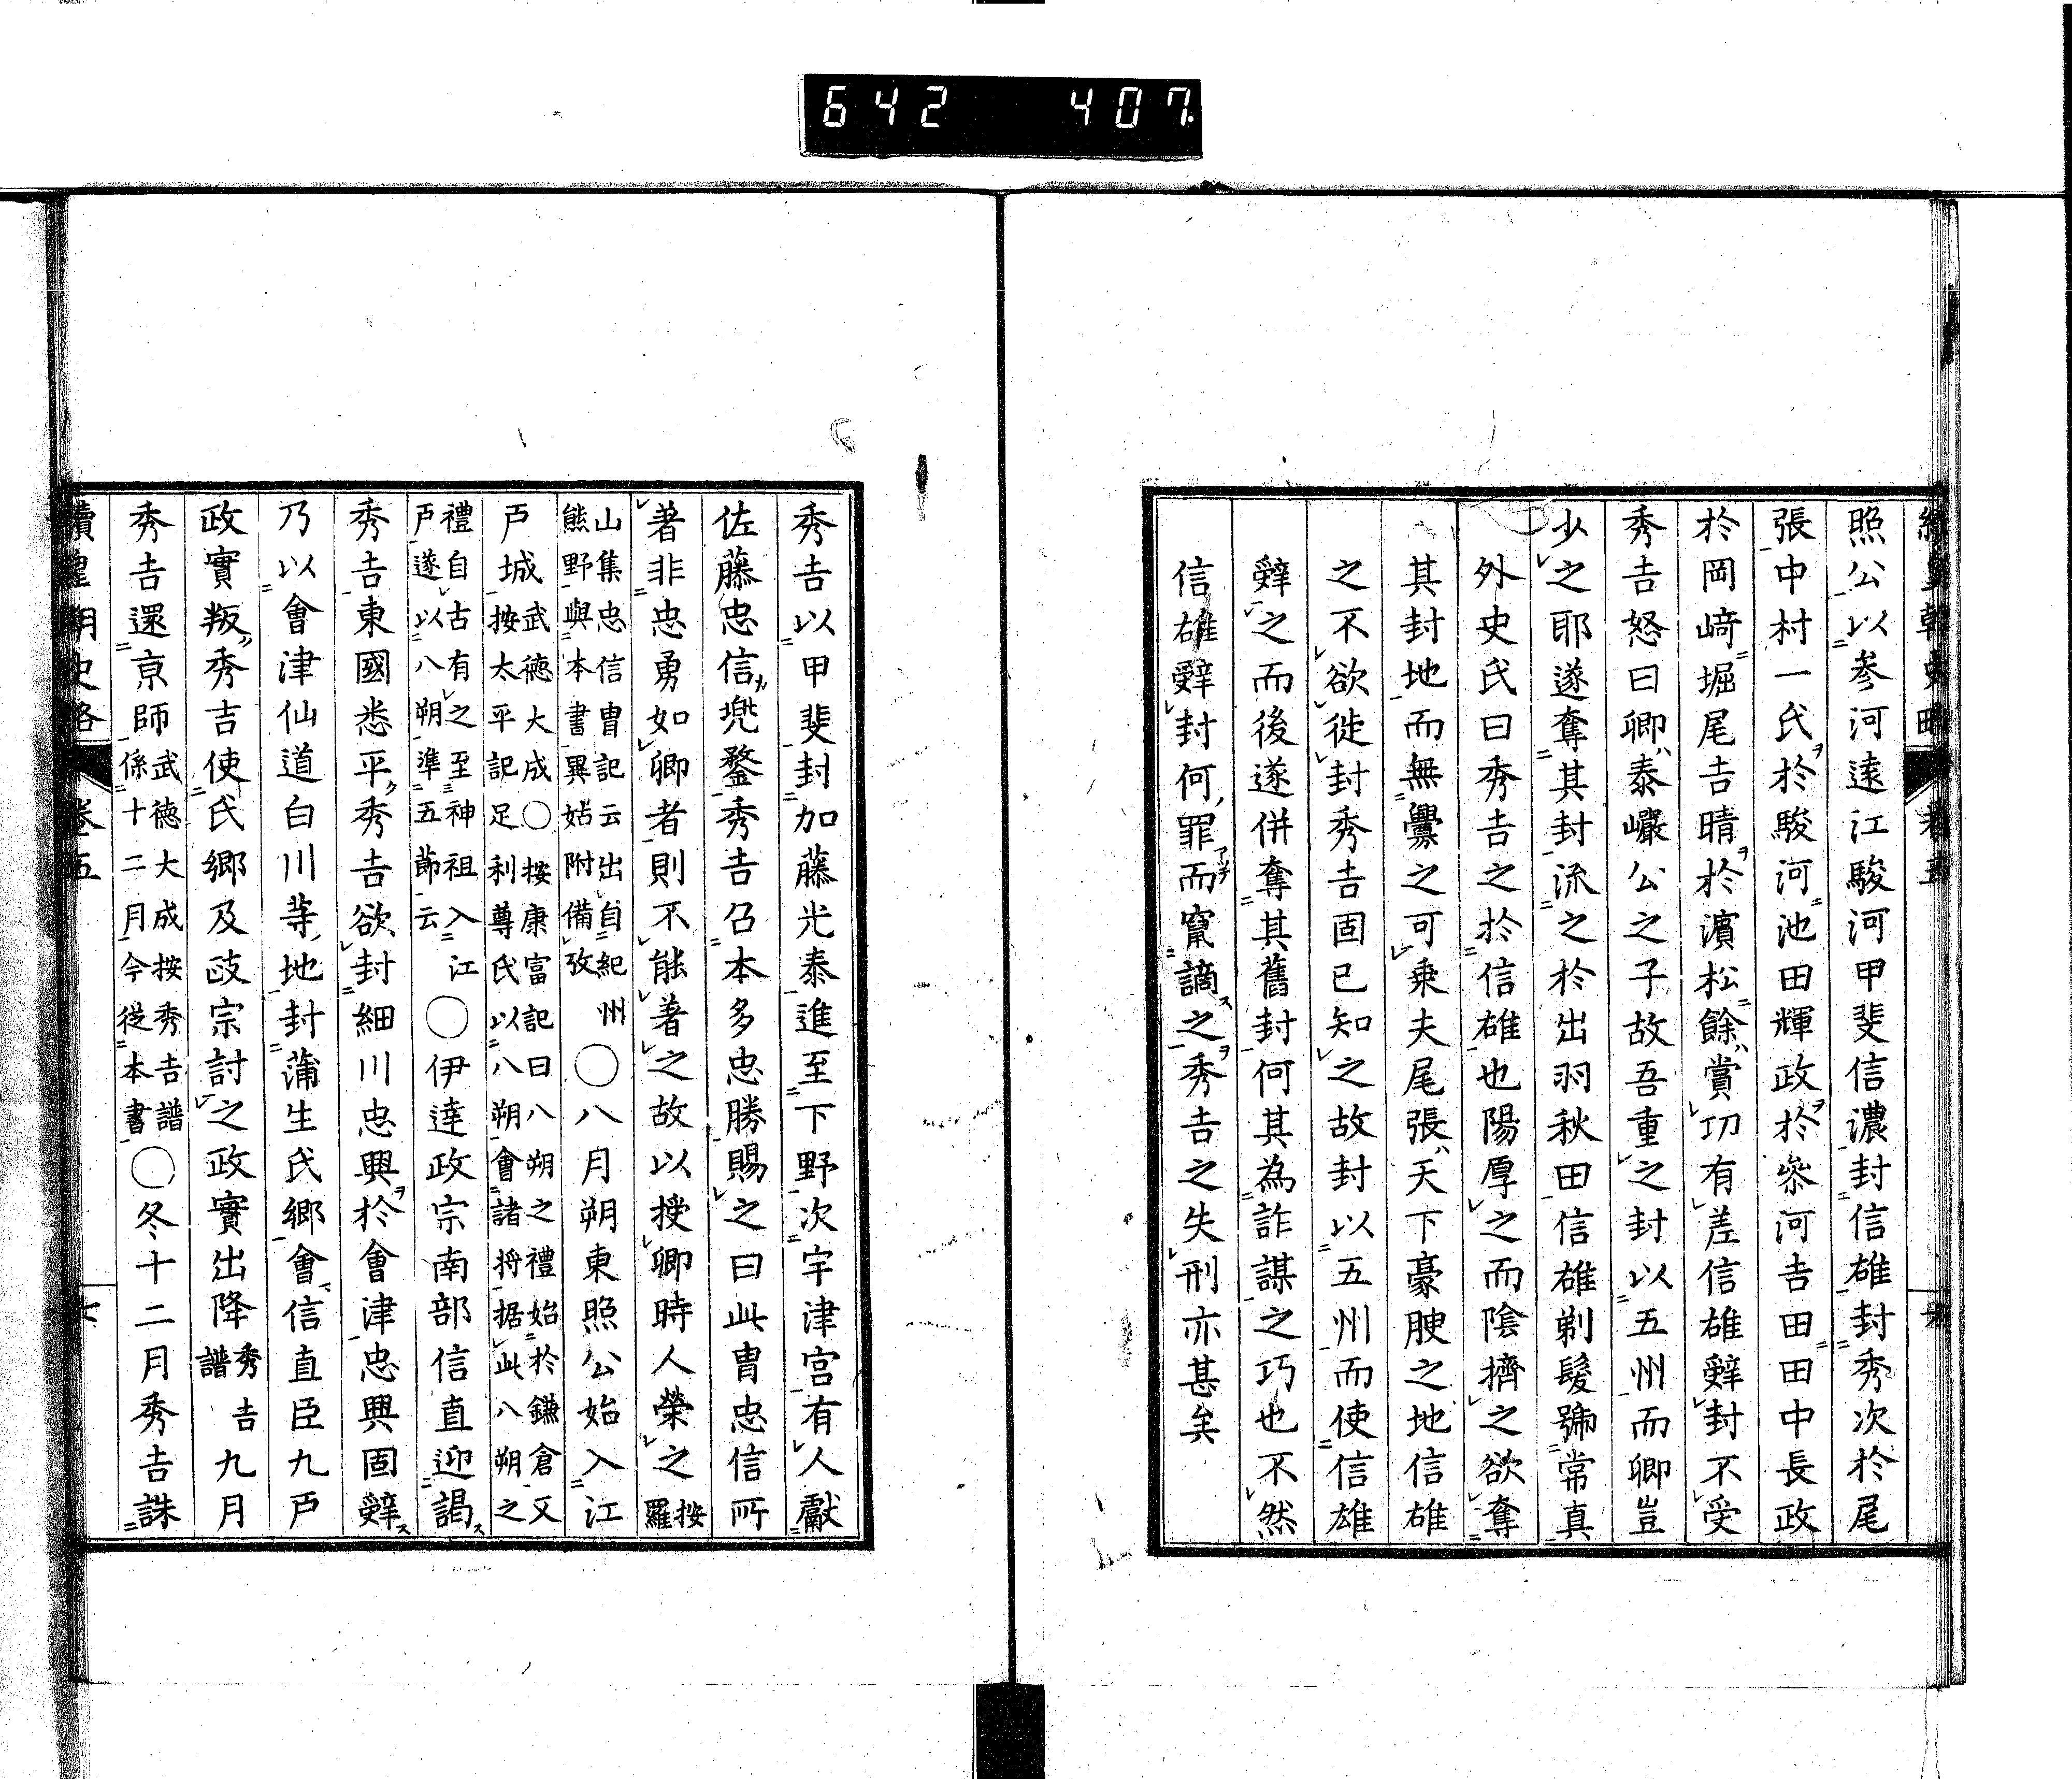 642 407
照公以参河遠江駿河甲斐信濃封信雄封秀次於尾
張中村一氏於駿河池田輝政於參河吉田田中長政
於岡﨑堀尾吉晴於濱松餘賞功有差信雄辤封不受
秀吉怒曰卿泰巖公之子故吾重之封以五州而卿豈
少之耶遂奪其封流之於出羽秋田信雄剃髮號常真
外史氏曰秀吉之於信雄也陽厚之而陰擠之欲奪
其封地而無釁之可乗夫尾張天下豪腴之地信雄
之不欲徙封秀吉固已知之故封以五州而使信雄
辤之而後遂併奪其舊封何其為詐謀之巧也不然
信雄辤封何罪而竄謫之秀吉之失刑亦甚矣
秀吉以甲斐封加藤光泰進至下野次宇津宮有人獻
佐藤忠信兜鍪秀吉召本多忠勝賜之曰此冑忠信所
著非忠勇如卿者則不能著之故以授卿時人榮之按羅
山集忠信冑記云出自紀州熊野與本書異姑附備攷〇八月朔東照公始入江
戸城武德大成〇按康富記曰八朔之禮始於鎌倉又按太平記足利尊氏以八朔會諸将据此八朔之
禮自古有之至神祖入江戸遂以八朔準五節云〇伊達政宗南部信直迎謁
秀吉東國悉平秀吉欲封細川忠興於會津忠興固辤
乃以會津仙道白川等地封蒲生氏鄉會信直臣九戸
政實叛秀吉使氏鄉及政宗討之政實出降秀吉譜九月
秀吉還京師武德大成按秀吉譜係十二月今従本書〇冬十二月秀吉誅
續皇朝史略 卷五